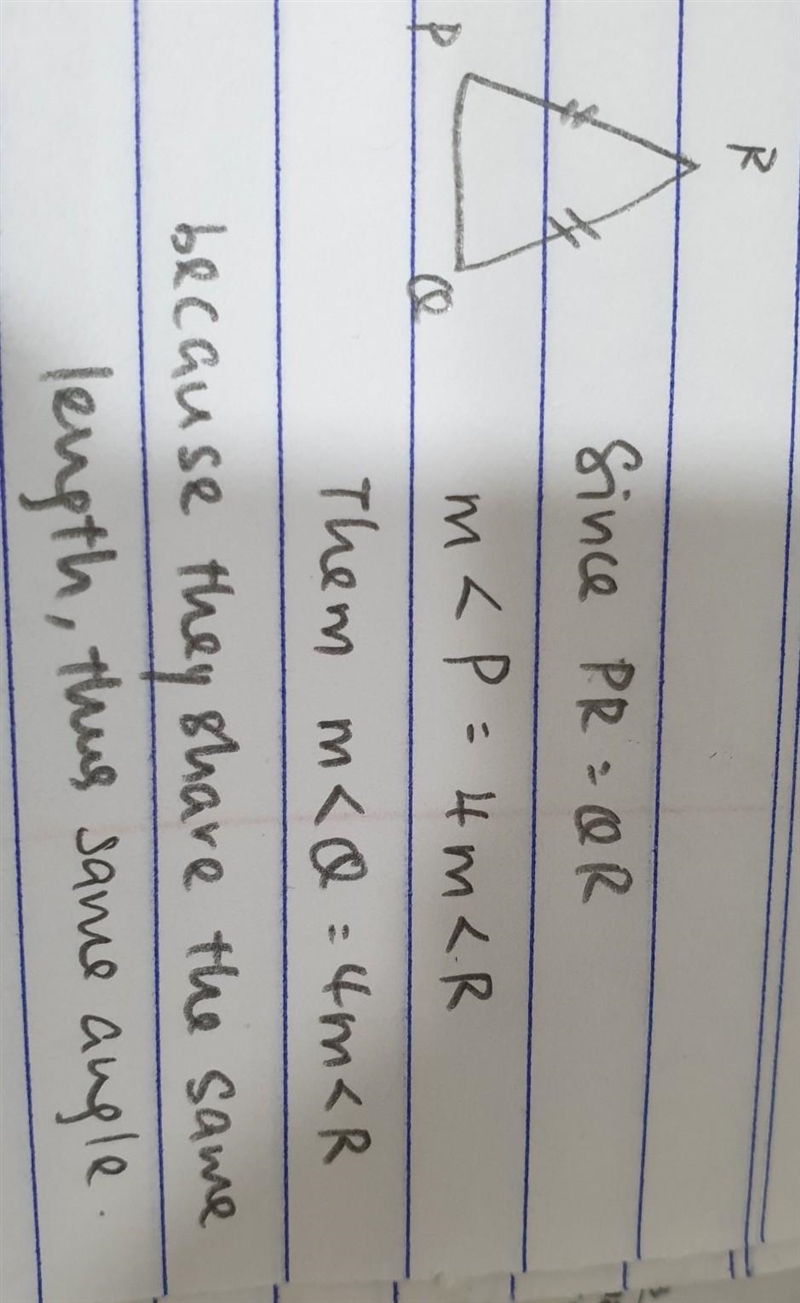 R
P
Q
Since PR = QR
m < P = 4 m < R
Them m < Q = 4m < R
because they share the same
length, thus same angle.